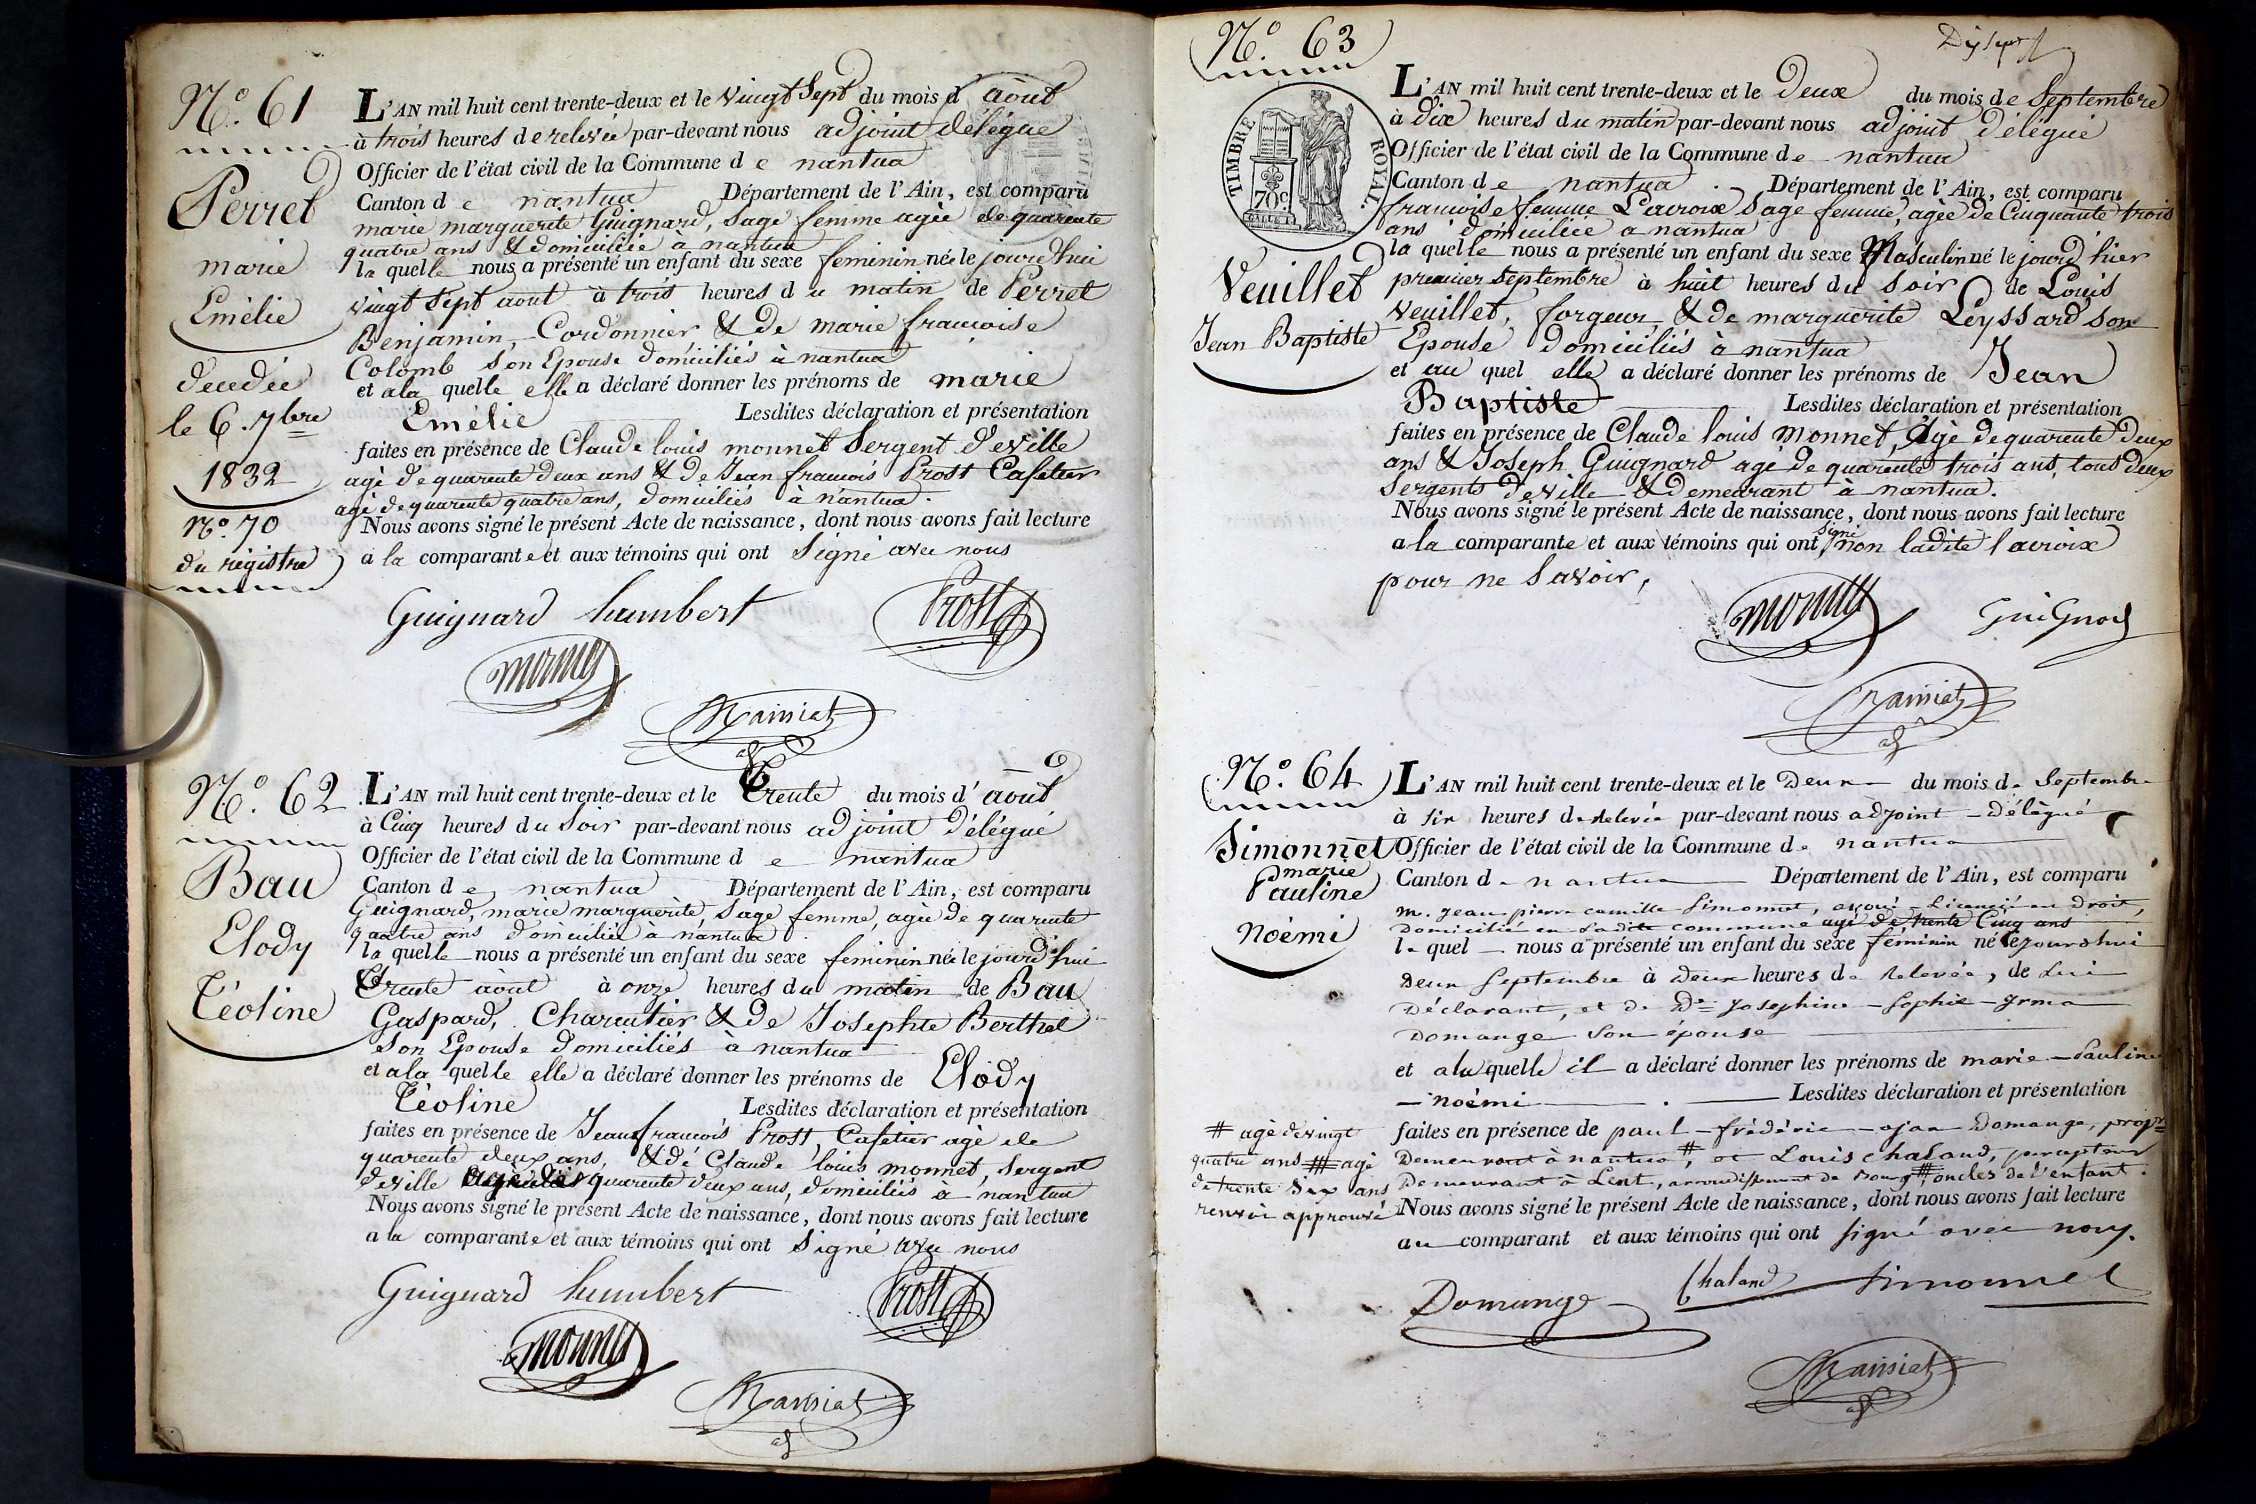 N.o 61
Perret
marie
Emélie
decedée
le 6. 7bre
1832
N.o 70
du registre
L'AN mil huit cent trente-deux et le vingt Sept du mois d'août
à trois heures de relevée par-devant nous adjoint délégué
Officier de l'état civil de la Commune de nantua
Canton de nantua Département de l'Ain, est comparu
marie marguerite Guignard, sage femme agée de quarante
quatre ans & domiciliée à nantua
la quelle nous a présenté un enfant du sexe feminin née le jourd'hui
vingt Sept aout à trois heures du matin de Perret
Benjamin, Cordonnier & de marie francoise
Colomb son Epouse domiciliés à nantua
et a la quelle elle a déclaré donner les prénoms de marie
Emélie Lesdites déclaration et présentation
faites en présence de Claude louis monnet Sergent de ville
agé de quarente deux ans & de Jean francois Prost Cafetier
agé de quarente quatre ans, domiciliés à nantua.
Nous avons signé le présent Acte de naissance, dont nous avons fait lecture
a la comparante et aux témoins qui ont Signé avec nous
Guignard humbert Prost
monnet
Mansiat
N.o 62
Bau
Elody
Téotine
L'AN mil huit cent trente-deux et le Trente du mois d'août
à Cinq heures du Soir par-devant nous adjoint délégué
Officier de l'état civil de la Commune de nantua
Canton de nantua Département de l'Ain, est comparu
Guignard, marie marguerite, sage femme, agée de quarente
quatre ans domiciliée à nantua
la quelle nous a présenté un enfant du sexe feminin née le jourd'hui
Trente août à onze heures du matin de Bau
Gaspard, Charcutier & de Josephte Berthet
son Epouse domiciliés à nantua
et a la quelle elle a déclaré donner les prénoms de Elody
Téotine Lesdites déclaration et présentation
faites en présence de Jean francois Prost, Cafetier agé de
quarente deux ans, & de Claude louis monnet, Sergent
de ville quarente deux ans, domiciliés à nantua
Nous avons signé le présent Acte de naissance, dont nous avons fait lecture
a la comparante et aux témoins qui ont Signé avec nous
Guignard humbert Prost
monnet
Mansiat
N.o 63
TIMBRE ROYAL.
70c
Veuillet
Jean Baptiste
L'AN mil huit cent trente-deux et le Deux du mois de Septembre
à dix heures du matin par-devant nous adjoint délégué
Officier de l'état civil de la Commune de nantua
Canton de nantua. Département de l'Ain, est comparu
francoise femme Lacroix sage femme, agée de Cinquante trois
ans domiciliée a nantua
la quelle nous a présenté un enfant du sexe Masculin né le jourd'hier
premier septembre à huit heures du soir de Louis
Veuillet, forgeur, & de marguerite Leyssard son
Epouse domiciliés à nantua
et au quel elle a déclaré donner les prénoms de Jean
Baptiste Lesdites déclaration et présentation
faites en présence de Claude louis Monnet, agé de quarente Deux
ans & Joseph Guignard agé de quarente trois ans, tous deux
Sergents de ville & demeurant à nantua.
Nous avons signé le présent Acte de naissance, dont nous avons fait lecture
a la comparante et aux témoins qui ont Signé non ladite lacroix
pour ne Savoir,
monnet GuiGnard
Mansiat
N.o 64
Simonnet
marie
Pauline
Noémi
L'AN mil huit cent trente-deux et le Deux du mois de Septembre
à six heures de relevée par-devant nous adjoint délégué
Officier de l'état civil de la Commune de nantua
Canton de nantua Département de l'Ain, est comparu
M. jean-pierre camille Simonnet, avoué Licencié en droit,
Domicilié en ladite commune agé de trente Cinq ans
le quel nous a présenté un enfant du sexe féminin né cejourdhui
deux Septembre à deux heures de relevée, de Lui
Déclarant, et de De Josephine-Sophie-Irma
Domange Son épouse
et a la quelle il a déclaré donner les prénoms de marie-Pauline
-noémi Lesdites déclaration et présentation
faites en présence de paul-frédéric Domange, propre
Demeurant à nantua #, et Louis chaland, percepteur
Demeurant à Lent, arrondissement de Bourg ## oncles de l'enfant.
# agé de vingt
quatre ans ## agé
de trente Six ans
renvoi approuvé
Nous avons signé le présent Acte de naissance, dont nous avons fait lecture
au comparant et aux témoins qui ont signé avec nous.
Domange Chaland Simonnet
Mansiat